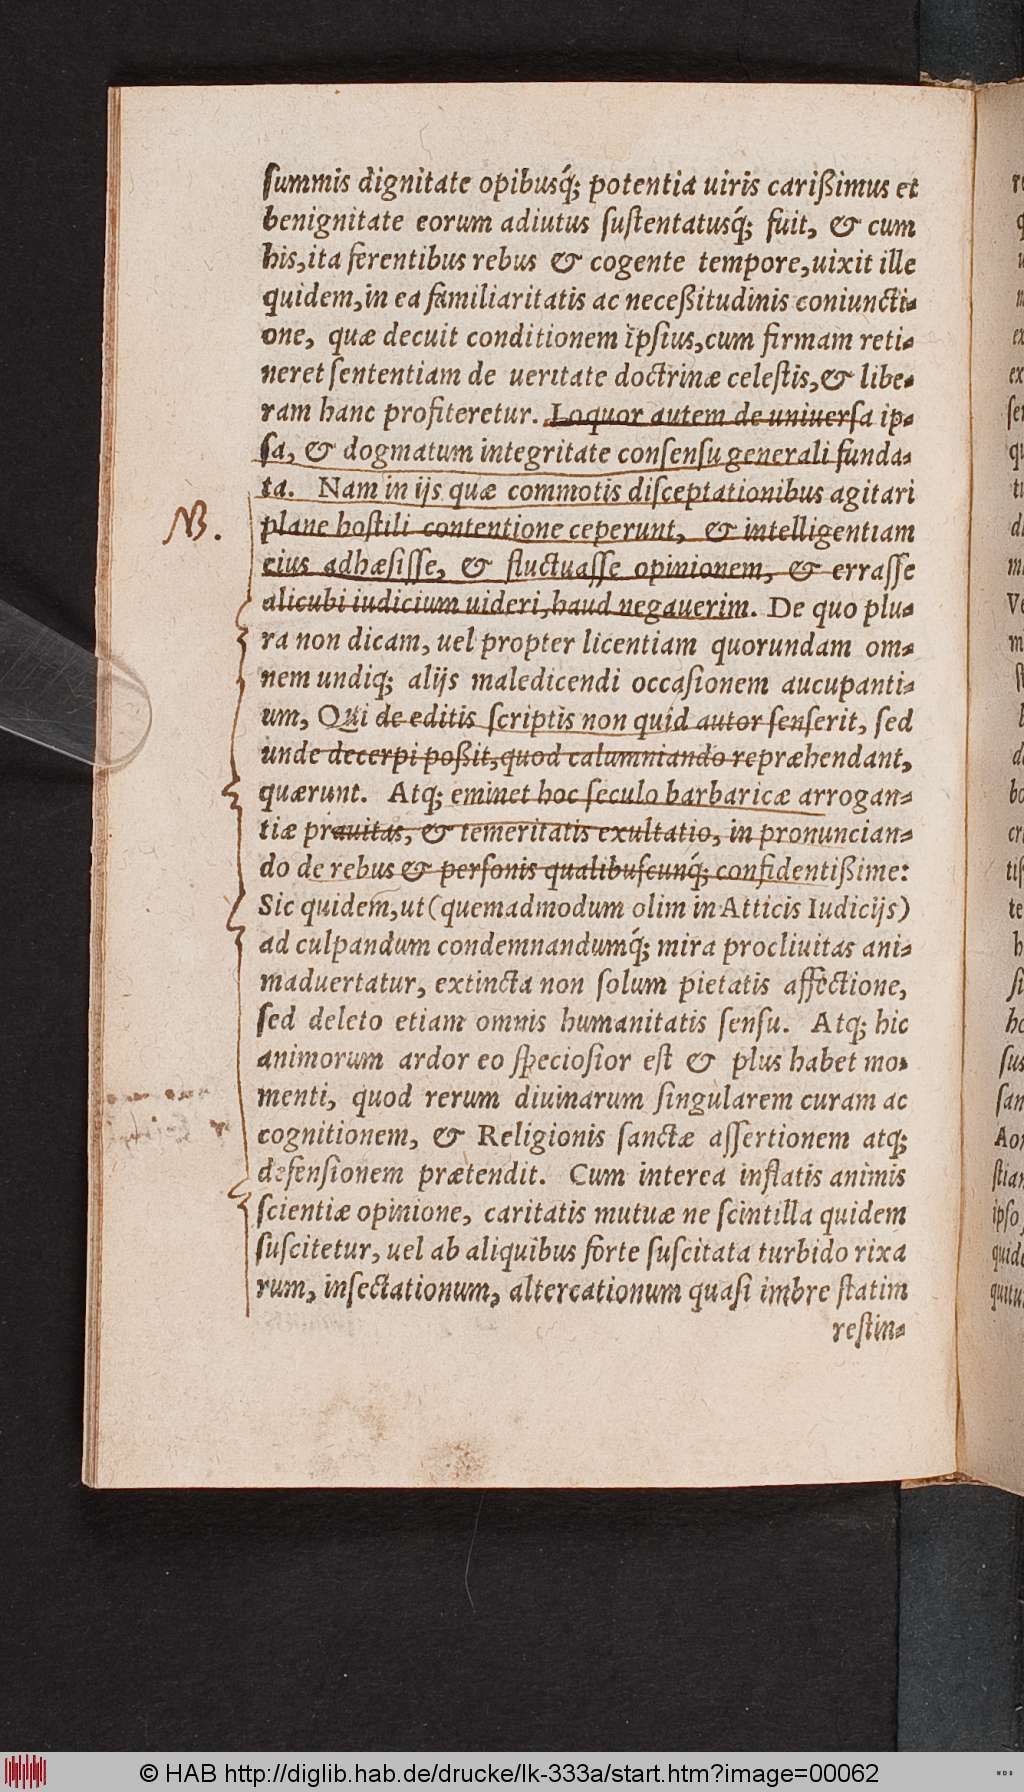 summis dignitate opibusq́; potentia uiris carißimus et
benignitate eorum adiutus sustentatusq́; fuit, & cum
his, ita ferentibus rebus & cogente tempore, uixit ille
quidem, in ea familiaritatis ac neceßitudinis coniuncti-
one, quæ decuit conditionem ipsius, cum firmam reti-
neret sententiam de ueritate doctrinæ celestis, & libe-
ram hanc profiteretur. Loquor autem de uniuersa ip-
sa, & dogmatum integritate consensu generali funda-
ta. Nam in ijs quæ commotis disceptationibus agitari
NB.
plane hostili contentione ceperunt, & intelligentiam
eius adhæsisse, & fluctuasse opinionem, & errasse
alicubi iudicium uideri, haud negauerim. De quo plu-
ra non dicam, uel propter licentiam quorundam om-
nem undiq; alijs maledicendi occasionem aucupanti-
um, Qui de editis scriptis non quid autor senserit, sed
unde decerpi poßit, quod calumniando repræhendant,
quærunt. Atq; eminet hoc seculo barbaricæ arrogan-
tiæ prauitas, & temeritatis exultatio, in pronuncian-
do de rebus & personis qualibuscunq́; confidentißime:
Sic quidem, ut (quemadmodum olim in Atticis Iudicijs)
ad culpandum condemnandumq́; mira procliuitas ani-
maduertatur, extincta non solum pietatis affectione,
sed deleto etiam omnis humanitatis sensu. Atq; hic
animorum ardor eo speciosior est & plus habet mo-
menti, quod rerum diuinarum singularem curam ac
cognitionem, & Religionis sanctæ assertionem atq;
defensionem prætendit. Cum interea inflatis animis
scientiæ opinione, caritatis mutuæ ne scintilla quidem
suscitetur, uel ab aliquibus forte suscitata turbido rixa
rum, insectationum, altercationum quasi imbre statim
restin-
© HAB http://diglib.hab.de/drucke/lk-333a/start.htm?image=00062